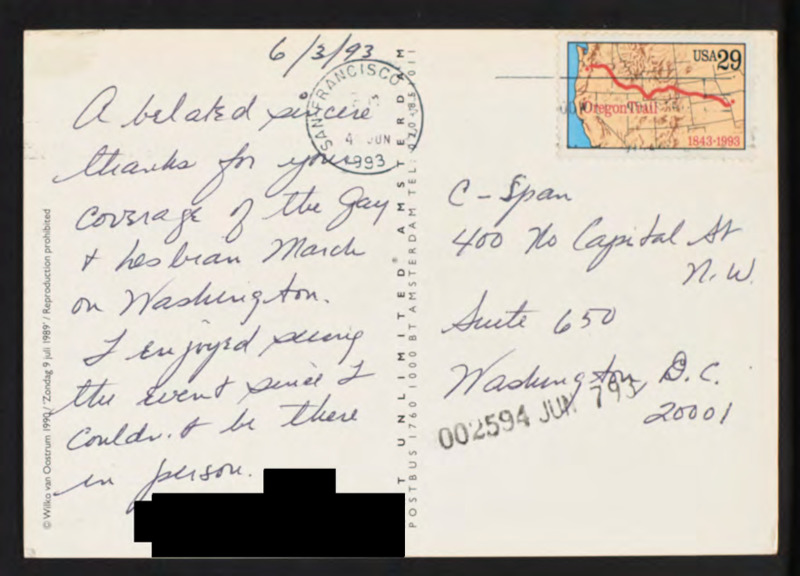 6/3/93
A belated sincere
thanks for your
coverage of the Gay
& Lesbian March
on Washington.
I enjoyed seeing
the event since I
couldn't be there
in person.
SAN FRANCISCO
4 JUN
1993
USA 29
Oregon Trail
1843-1993
C-Span
400 No Capital St
N.W.
Suite 650
Washington, D.C.
20001
002594 JUN 793
© Wilko van Oostrum 1990/ 'Zondag 9 juli 1989' / Reproduction prohibited
ART UNLIMITED® AMSTERDAM
POSTBUS 1760 1000 BT AMSTERDAM TEL: